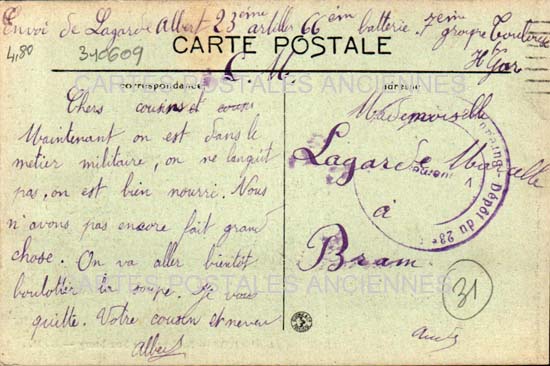 Envoi de Lagarde Albert 23ème artiller 66ém batterie 7eme groupe Toulouse
4,80 340609
CARTE POSTALE
Hte Gar
F. M.
CARTES POSTALES ANCIENNES
correspondance
adresse
Chers cousins et
Maintenant on est dans le
metier militaire, on ne languit
pas, on est bien nourri. Nous
n'avons pas encore fait grand
chose. On va aller bientôt
boulotter la soupe. Je vous
quitte. Votre cousin et neveu
Albert
Mademoiselle
Lagarde
à
Bram
Aude
Dépôt du 23e
CARTES POSTALES ANCIENNES
31